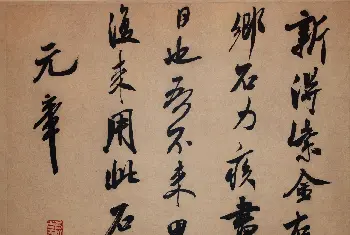 新得紫金右
鄉石力疾書
日也吾不来
復来用此石
元章